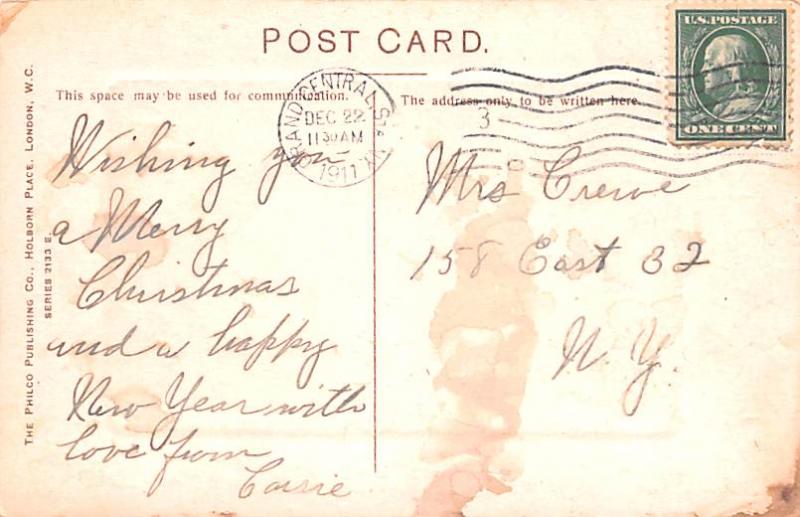 POST CARD.
U.S. POSTAGE
ONE CENT
GRAND CENTRAL STA. N.Y.
DEC 22
11 30 AM
1911
3
This space may be used for communication.
The address only to be written here.
THE PHILCO PUBLISHING CO., HOLBORN PLACE, LONDON, W.C.
SERIES 2133 E.
Wishing you
a Merry
Christmas
and a happy
New Year with
love from
Carrie
Mrs Crewe
158 East 32
N. Y.